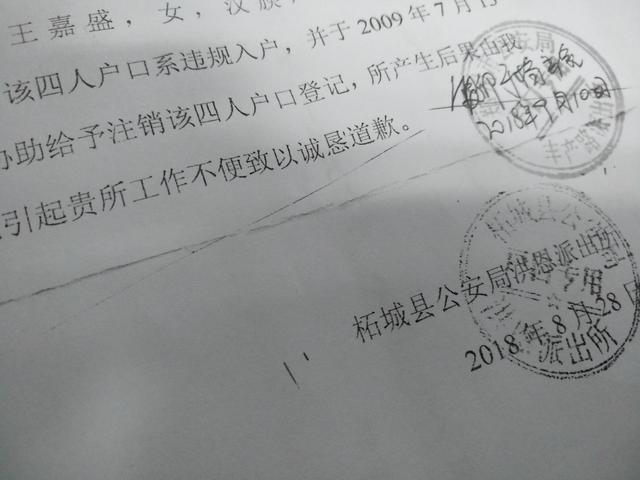 王嘉盛，女，汉族，
该四人户口系违规入户，并于2009年7月15
协助给予注销该四人户口登记，所产生后果由我
引起贵所工作不便致以诚恳道歉。
2018年9月10日
丰产路派出所
柘城县公安局洪恩派出所
2018年8月28日
柘城县公安局
专用
派出所